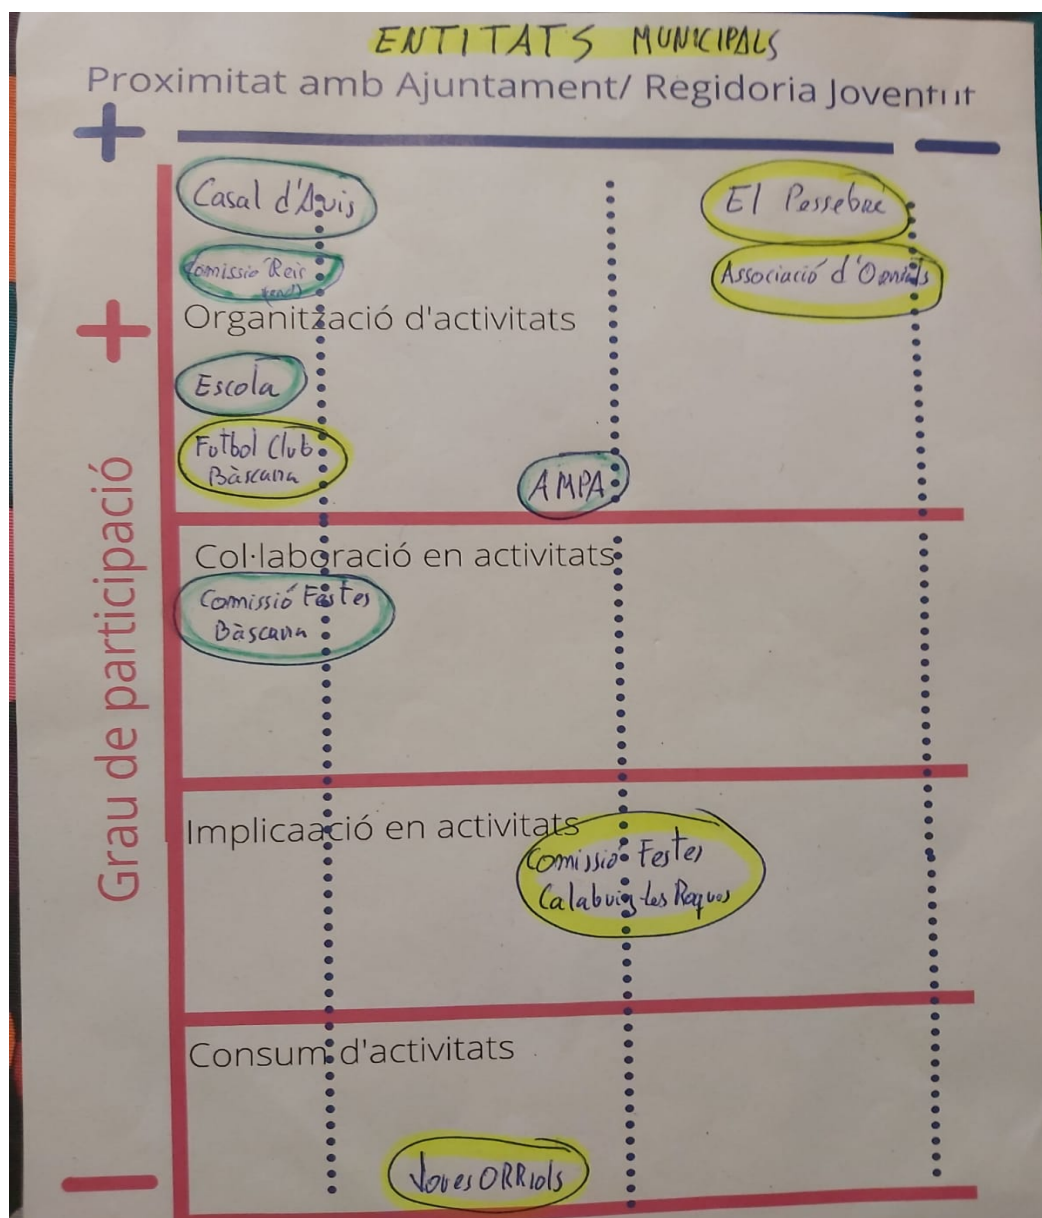 ENTITATS MUNICIPALS
Proximitat amb Ajuntament/ Regidoria Joventut
Casal d'Avis
El Pessebre
Comissió Reis
Associació d'Orriols
Organització d'activitats
Escola
Futbol Club
Bàscara
AMPA
Grau de participació
Col·laboració en activitats
Comissió Festes
Bàscara
Implicaació en activitats
Comissió Festes
Calabuig-les Roques
Consum d'activitats
Joves ORRiols